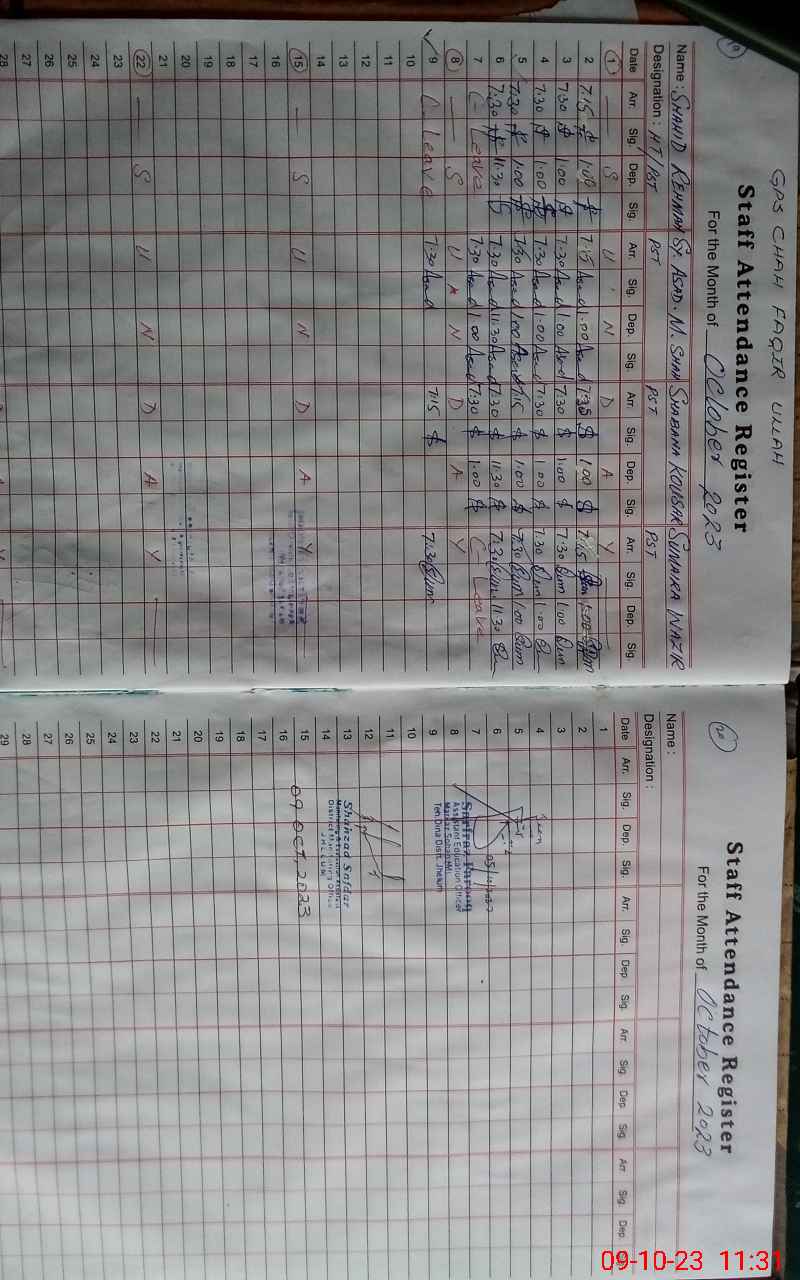 19
GPS CHAH FAQIR ULLAH
Staff Attendance Register
For the Month of October 2023
Name : SHAHID REHMAN SY. ASAD. N. SHAH SHABANA KOUSAR SUMAIRA WAZIR
Designation : HT/PST PST PST PST
Date Arr. Sig. Dep. Sig. Arr. Sig. Dep. Sig. Arr. Sig. Dep. Sig. Arr. Sig. Dep. Sig.
1 — S U N D A Y
2 7:15 1:00 7:15 Asad 1:00 Asad 7:30 1:00 7:15 1:00
3 7:30 1:00 7:30 Asad 1:00 Asad 7:30 1:00 7:30 1:00
4 7:30 1:00 7:30 Asad 1:00 Asad 7:30 1:00 7:30 1:00
5 7:30 1:00 7:30 Asad 1:00 Asad 7:15 1:00 7:30 1:00
6 7:30 11:30 7:30 Asad 11:30 Asad 7:30 11:30 7:30 11:30
7 C- Leave 7:30 Asad 1:00 Asad 7:30 1:00 C- Leave
8 — S U N D A Y
9 C- Leave 7:30 Asad 7:15 7:30
10
11
12
13
14
15 — S U N D A Y —
16
17
18
19
20
21
22 — S U N D A Y —
23
24
25
26
27
28
20
Staff Attendance Register
For the Month of October 2023
Name :
Designation :
Date Arr. Sig. Dep. Sig. Arr. Sig. Dep Sig. Arr. Sig. Dep Sig. Arr. Sig. Dep.
1
2
3
4
5
6
7
8
9
10
11
12
13
14
15
16
17
18
19
20
21
22
23
24
25
26
27
28
29
Sarfraz Farooq
Assistant Education Officer
Teh.Dina Distt. Jhelum
Shahzad Safdar
District Monitoring Officer
JHELUM
09 OCT 2023
09-10-23 11:31